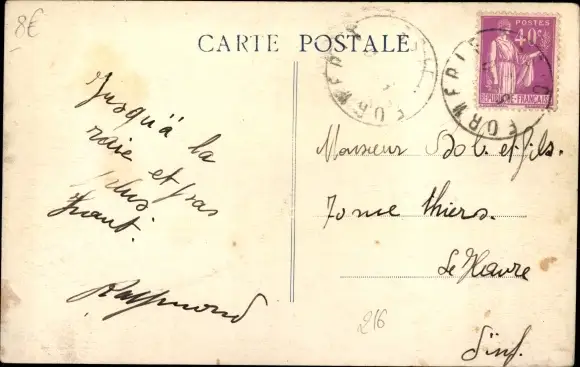 8€
CARTE POSTALE
POSTES
40c
REPUBLIQUE FRANÇAISE
Jusqu'à la
raie et pas
plus
haut.
Raymond
Monsieur Bob. et fils.
70 rue Thiers.
Le Havre
S. inf.
216